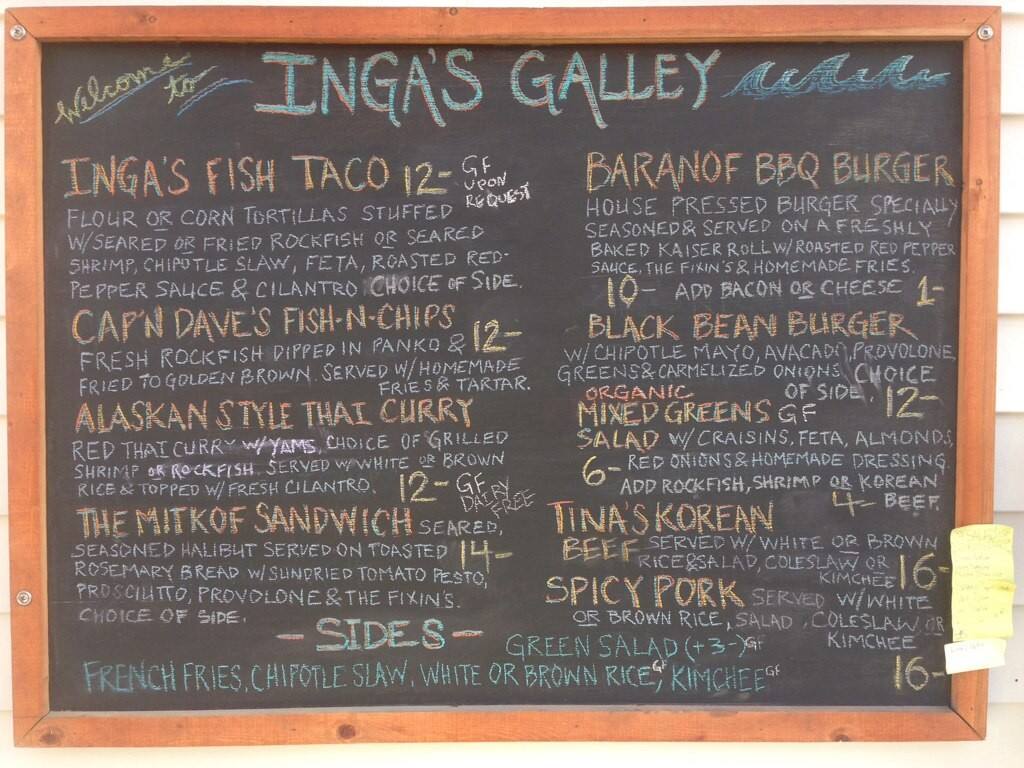 Welcome to
INGA'S GALLEY
INGA'S FISH TACO 12-
GF
UPON
REQUEST
FLOUR OR CORN TORTILLAS STUFFED
W/SEARED OR FRIED ROCKFISH OR SEARED
SHRIMP, CHIPOTLE SLAW, FETA, ROASTED RED-
PEPPER SAUCE & CILANTRO CHOICE OF SIDE.
CAP'N DAVE'S FISH-N-CHIPS
FRESH ROCKFISH DIPPED IN PANKO & 12-
FRIED TO GOLDEN BROWN. SERVED W/HOMEMADE
FRIES & TARTAR.
ALASKAN STYLE THAI CURRY
RED THAI CURRY W/YAMS. CHOICE OF GRILLED
SHRIMP OR ROCKFISH. SERVED W/WHITE OR BROWN
RICE & TOPPED W/FRESH CILANTRO. 12-
GF
DAIRY
FREE
THE MITKOF SANDWICH SEARED,
SEASONED HALIBUT SERVED ON TOASTED 14-
ROSEMARY BREAD W/SUNDRIED TOMATO PESTO,
PROSCIUTTO, PROVOLONE & THE FIXIN'S.
CHOICE OF SIDE.
BARANOF BBQ BURGER
HOUSE PRESSED BURGER SPECIALLY
SEASONED & SERVED ON A FRESHLY
BAKED KAISER ROLL W/ROASTED RED PEPPER
SAUCE, THE FIXIN'S & HOMEMADE FRIES.
10- ADD BACON OR CHEESE 1-
BLACK BEAN BURGER
W/CHIPOTLE MAYO, AVACADO, PROVOLONE,
GREENS & CARMELIZED ONIONS. CHOICE
OF SIDE. 12-
ORGANIC
MIXED GREENS GF
SALAD W/CRAISINS, FETA, ALMONDS,
6- RED ONIONS & HOMEMADE DRESSING.
ADD ROCKFISH, SHRIMP OR KOREAN
4- BEEF.
TINA'S KOREAN
BEEF SERVED W/WHITE OR BROWN
RICE & SALAD, COLESLAW OR
KIMCHEE 16-
SPICY PORK SERVED W/WHITE
OR BROWN RICE, SALAD, COLESLAW OR
KIMCHEE
16-
-SIDES-
GREEN SALAD (+3-) GF
FRENCH FRIES, CHIPOTLE SLAW, WHITE OR BROWN RICE GF, KIMCHEE GF